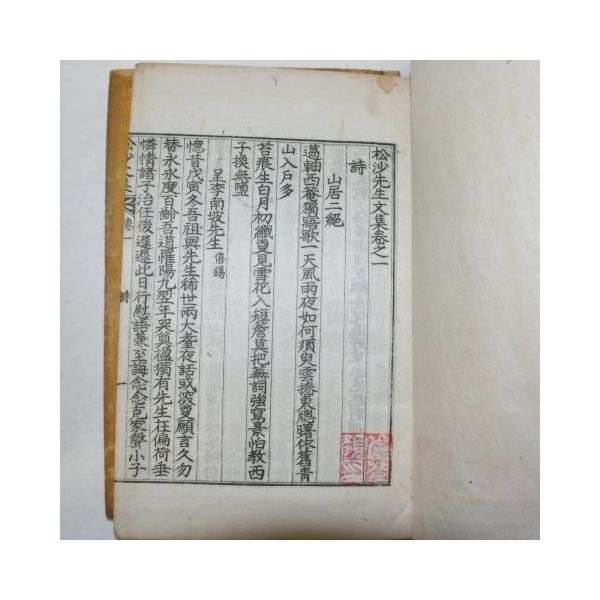 松沙先生文集卷之一
詩
山居二絕
薖軸西菴獨寤歌一天風雨夜如何須臾雲捲東牕曙依舊青
山入戶多
苔痕生白月初纖夏見雪花入短簷莫把蕪詞強寫景怕教西
子換無鹽
呈李南坡先生 僖錫
憶昔戊寅冬吾祖與先生稀世兩大耋夜話或深更願言久勿
替永永度百齡吾道罹陽九翌年哭奠楹獨有先生在偏荷垂
憐情諸子治任後遲遲此日行慰語兼至誨念念克家聲小子
松沙文集 卷一 詩 一